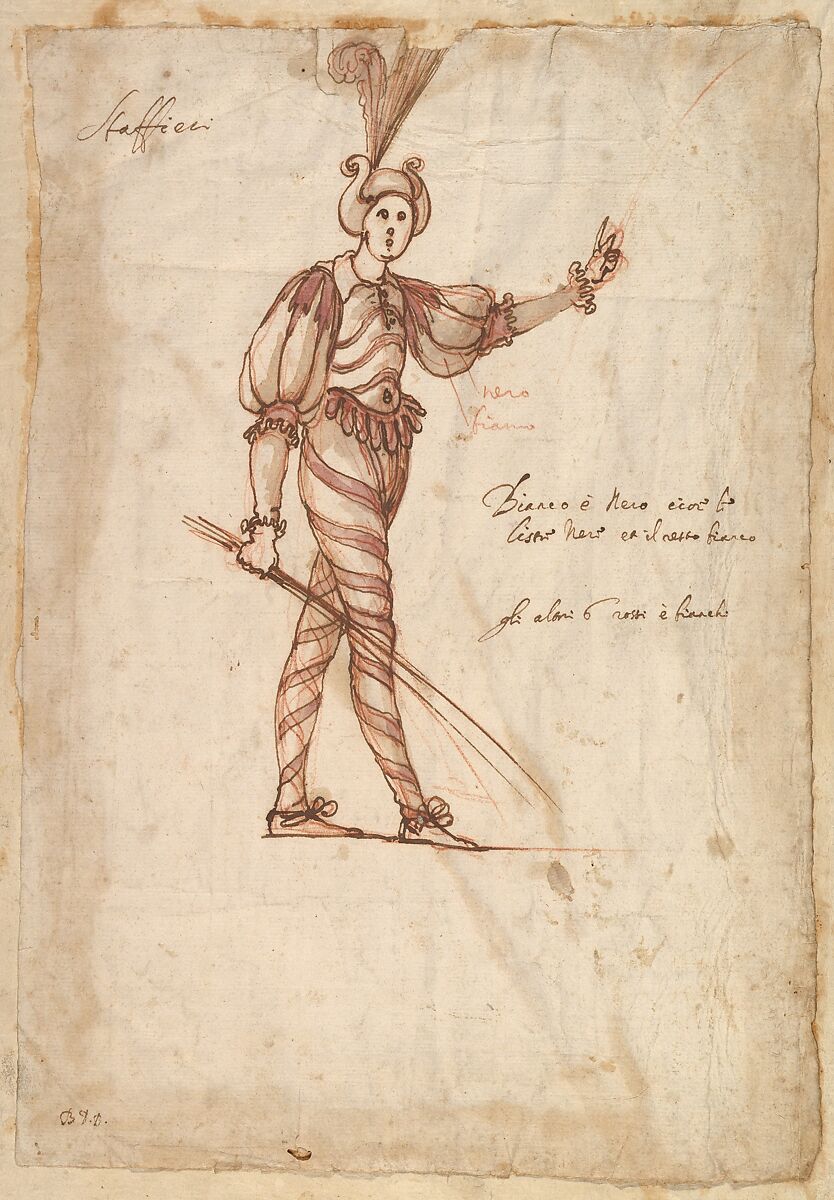 Staffieri
nero
bianco
Bianco è Nero cioè le
liste Nere et il resto bianco
gli altri 6 rossi è bianchi
B T. D.